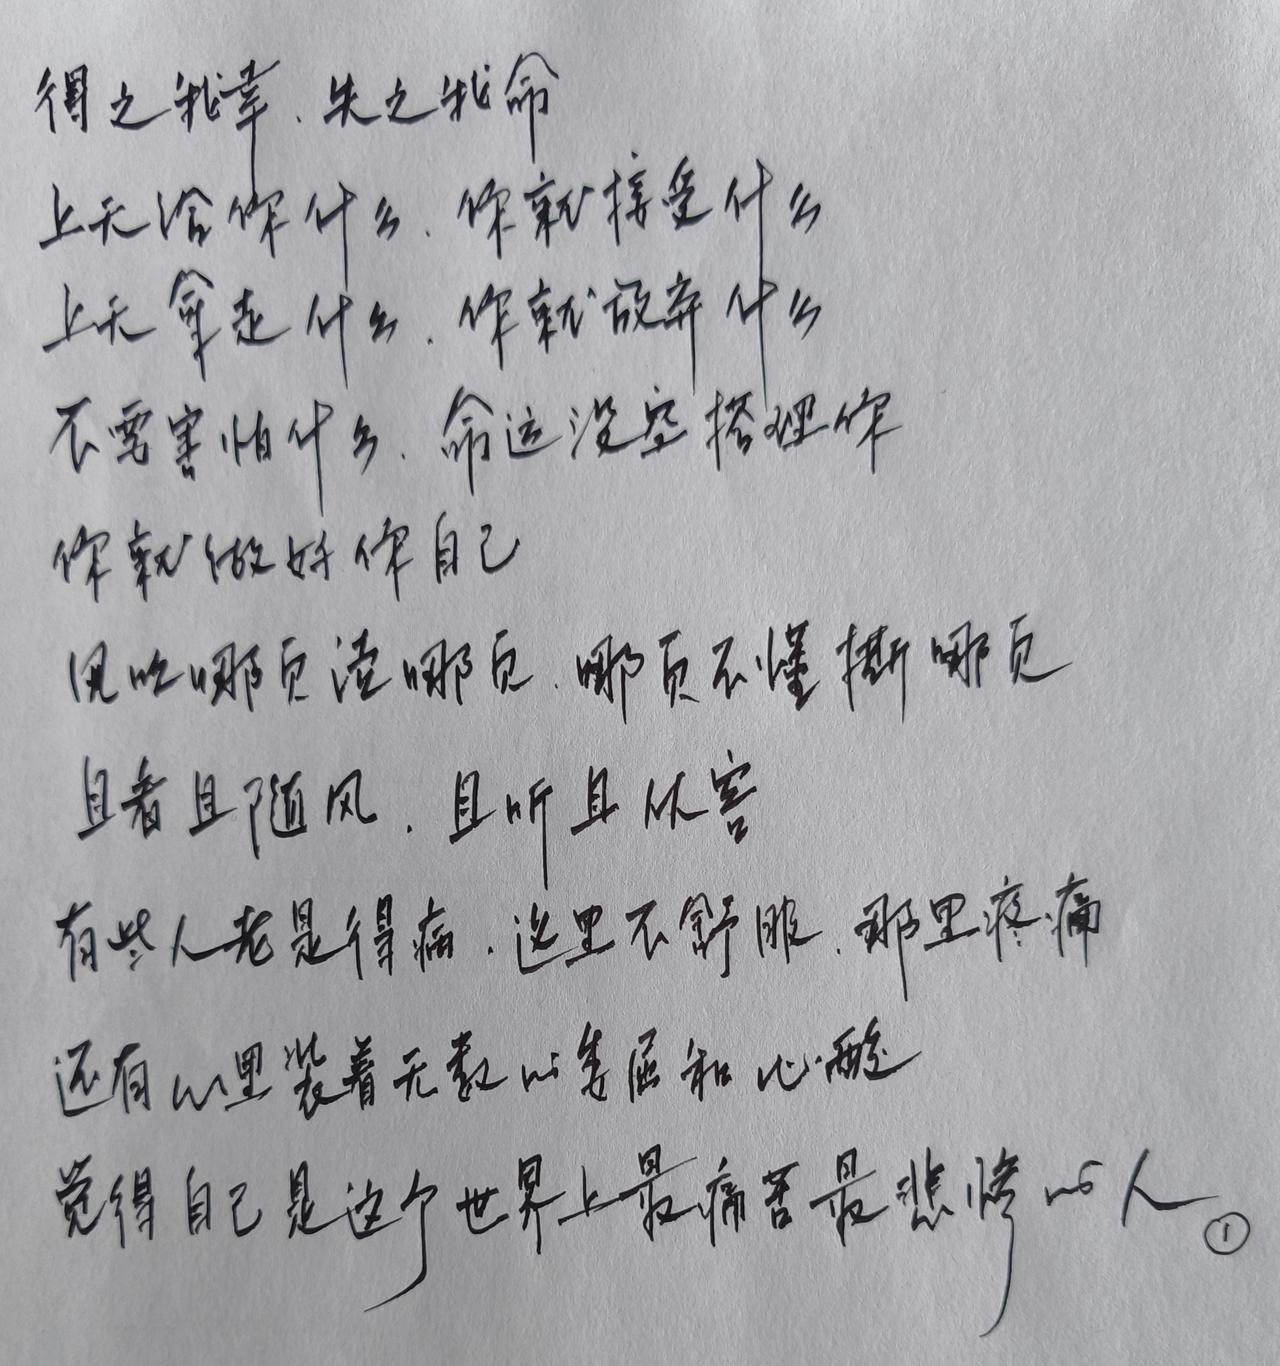 得之我幸、失之我命
上天给你什么、你就接受什么
上天拿走什么、你就放弃什么
不要害怕什么、命运没空搭理你
你就做好你自己
风吹哪页读哪页、哪页不懂撕哪页
且看且随风、且听且从容
有些人老是得病、这里不舒服、那里疼痛
还有心里装着无数的委屈和心酸
觉得自己是这个世界上最痛苦最悲惨的人
①